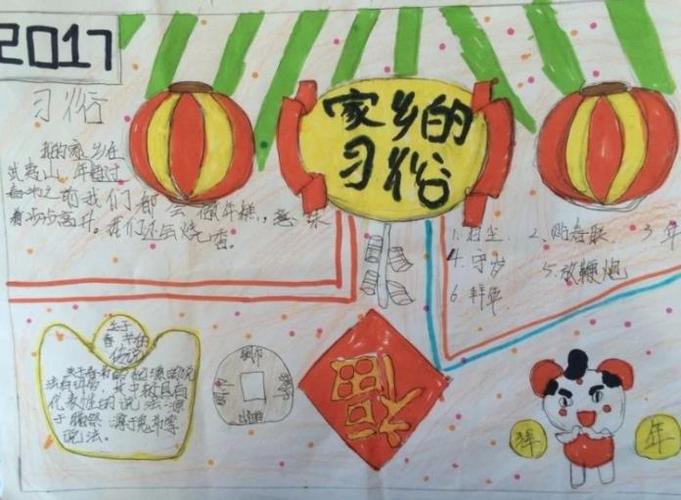 2017
习俗
家乡的
习俗
我的家乡在
武夷山，年超过
春节之前我们都会做年糕，意味
着步步高升。我们还会烧香。
1.扫尘
2.贴春联
3.年
4.守岁
5.放鞭炮
6.拜年
关于
春节的
传说
关于春节的起源的说
法有
代表性的说法源
于腊祭，源于鬼节等
说法。
福
年